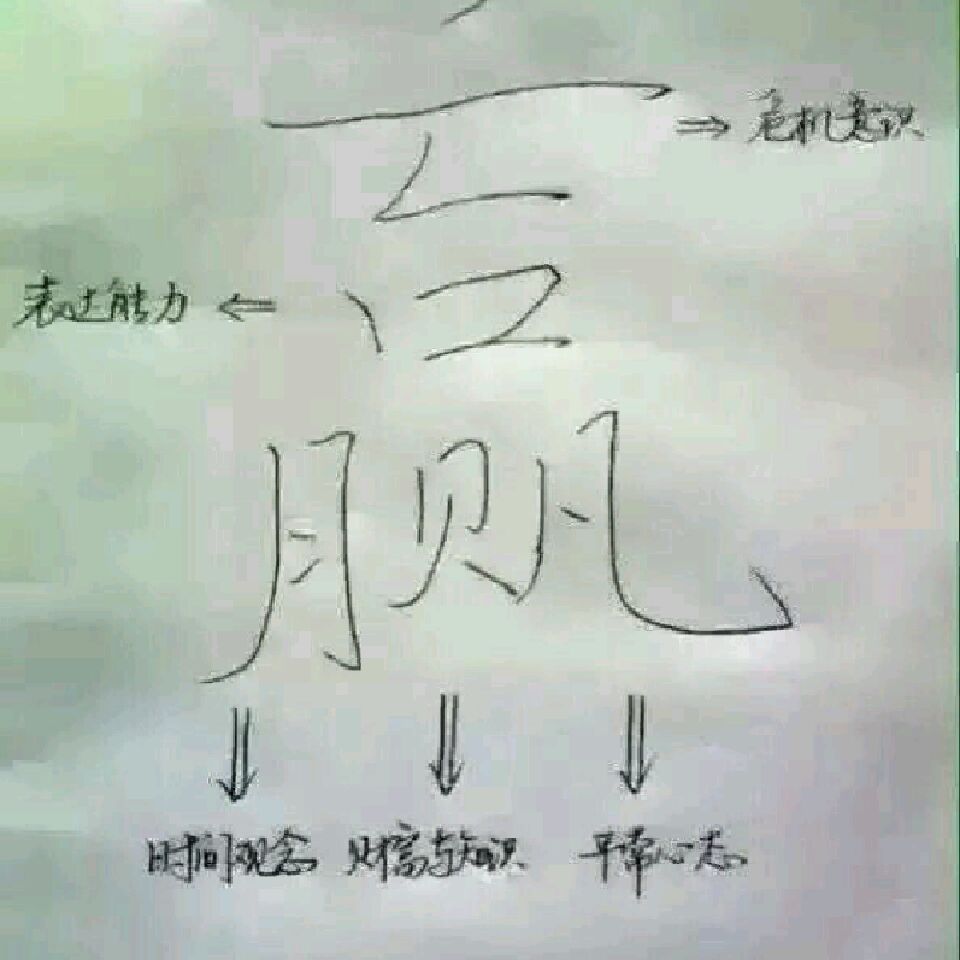 亡 ⇒ 危机意识
表达能力 ⇐ 口
月贝凡
时间观念 财富与知识 平常心态